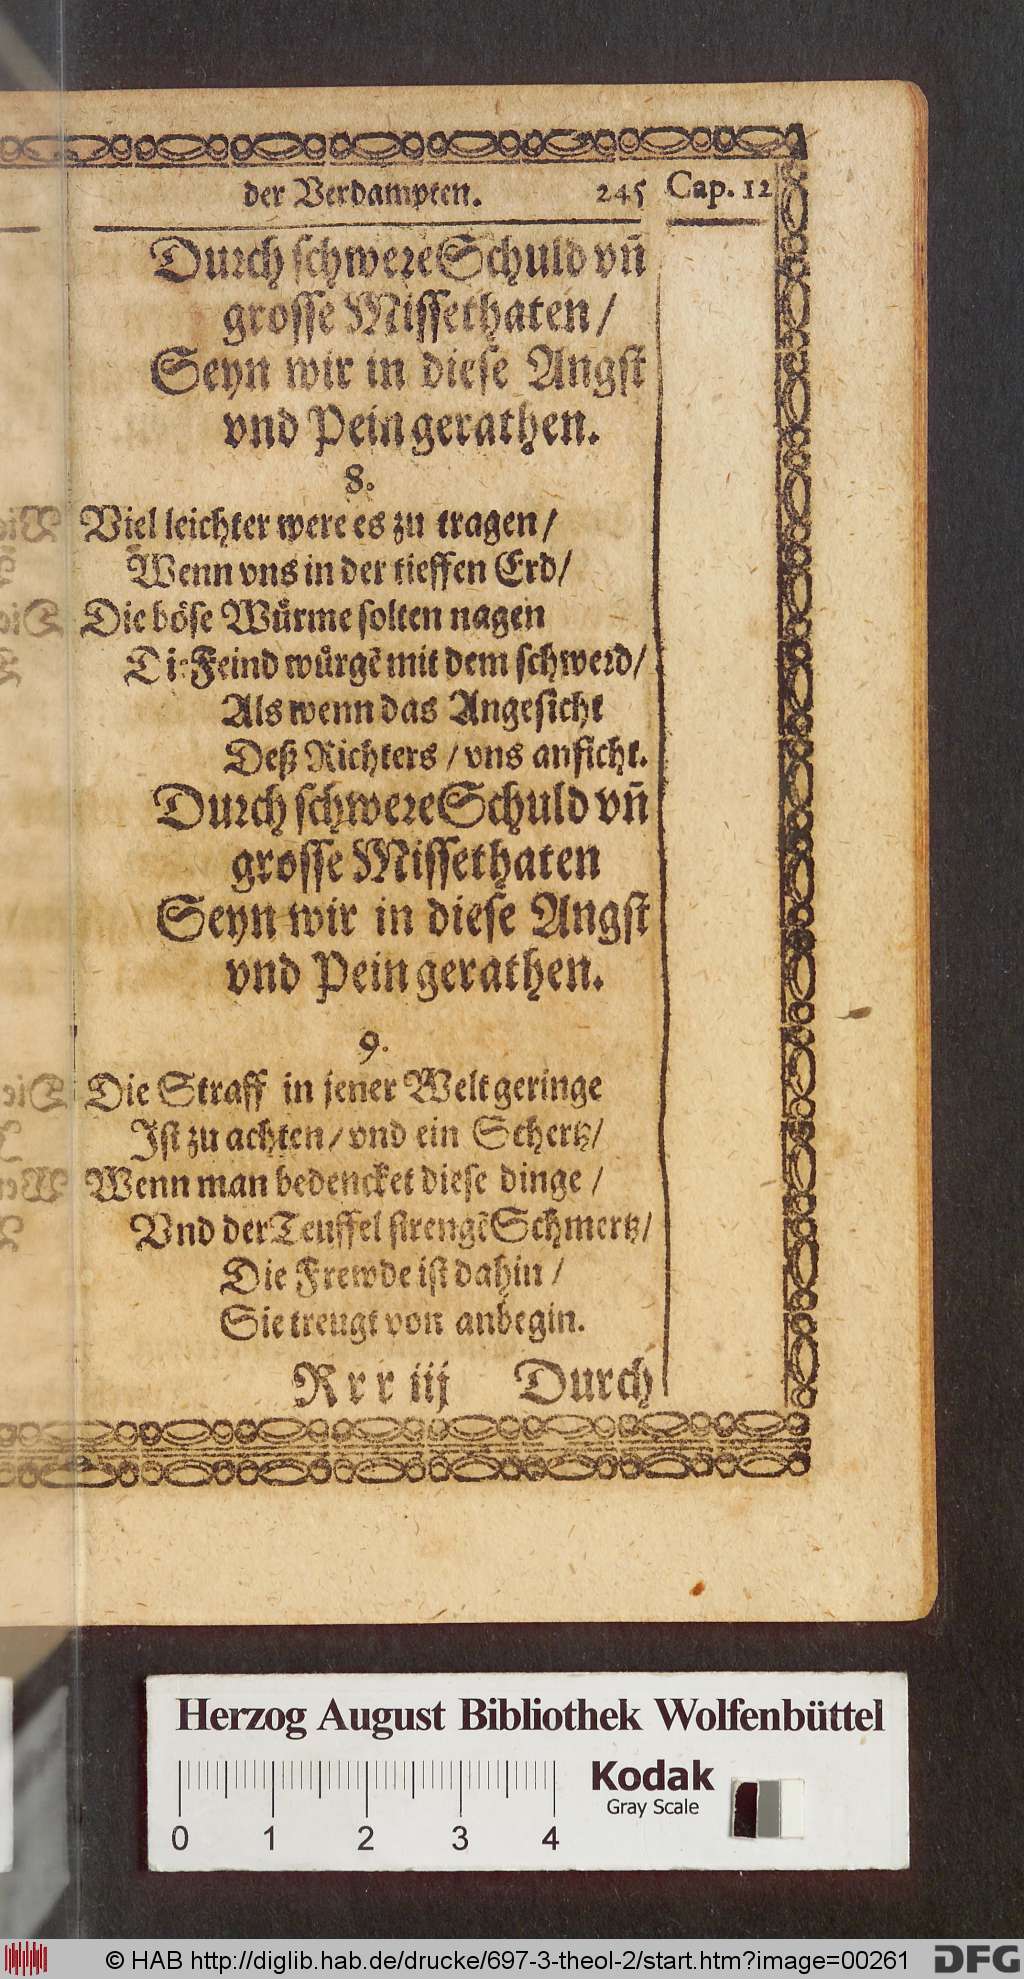 der Verdampten. 245 Cap. 12
Durch schwere Schuld vñ
grosse Missethaten /
Seyn wir in diese Angst
vnd Pein gerathen.
8.
Viel leichter were es zu tragen /
Wenn vns in der tieffen Erd /
Die böse Würme solten nagen
Feind würgẽ mit dem schwerd /
Als wenn das Angesicht
Deß Richters / vns anficht.
Durch schwere Schuld vñ
grosse Missethaten
Seyn wir in diese Angst
vnd Pein gerathen.
9.
Die Straff in jener Welt geringe
Ist zu achten / vnd ein Schertz /
Wenn man bedencket diese dinge /
Vnd der Teuffel strengẽ Schmertz /
Die Frewde ist dahin /
Sie treugt von anbegin.
Rrr iij Durch
Herzog August Bibliothek Wolfenbüttel
Kodak
Gray Scale
0 1 2 3 4
© HAB http://diglib.hab.de/drucke/697-3-theol-2/start.htm?image=00261 DFG